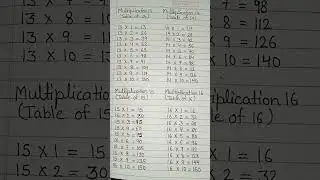 13 × 8
13 × 9
13 × 10
Multiplication
(Table of
15 × 1 =
15 × 2 =
Multiplication
(Table of
13 × 1 = 13
13 × 2 = 26
13 × 3 = 39
13 × 4 = 52
13 × 5 = 65
13 × 6 = 78
13 × 7 = 91
13 × 8 = 104
13 × 9 = 117
13 × 10 = 130
Multiplication
(Table of
14 × 2 = 28
14 × 3 = 42
14 × 4 = 56
14 × 5 = 70
14 × 6 = 84
14 × 7 = 98
14 × 8 = 112
14 × 9 = 126
14 × 10 = 140
Multiplication 15
(Table of 15)
15 × 1 = 15
15 × 2 = 30
15 × 3 = 45
15 × 4 = 60
15 × 5 = 75
15 × 6 = 90
15 × 7 = 105
15 × 8 = 120
15 × 9 = 135
15 × 10 = 150
Multiplication 16
16 × 1 = 16
16 × 2 = 32
16 × 3 = 48
16 × 4 = 64
16 × 5 = 80
16 × 6 = 96
16 × 7 = 112
16 × 8 = 128
16 × 9 = 144
16 × 10 = 160
7 = 98
8 = 112
9 = 126
10 = 140
plication 16
of 16)
1 = 16
2 = 32